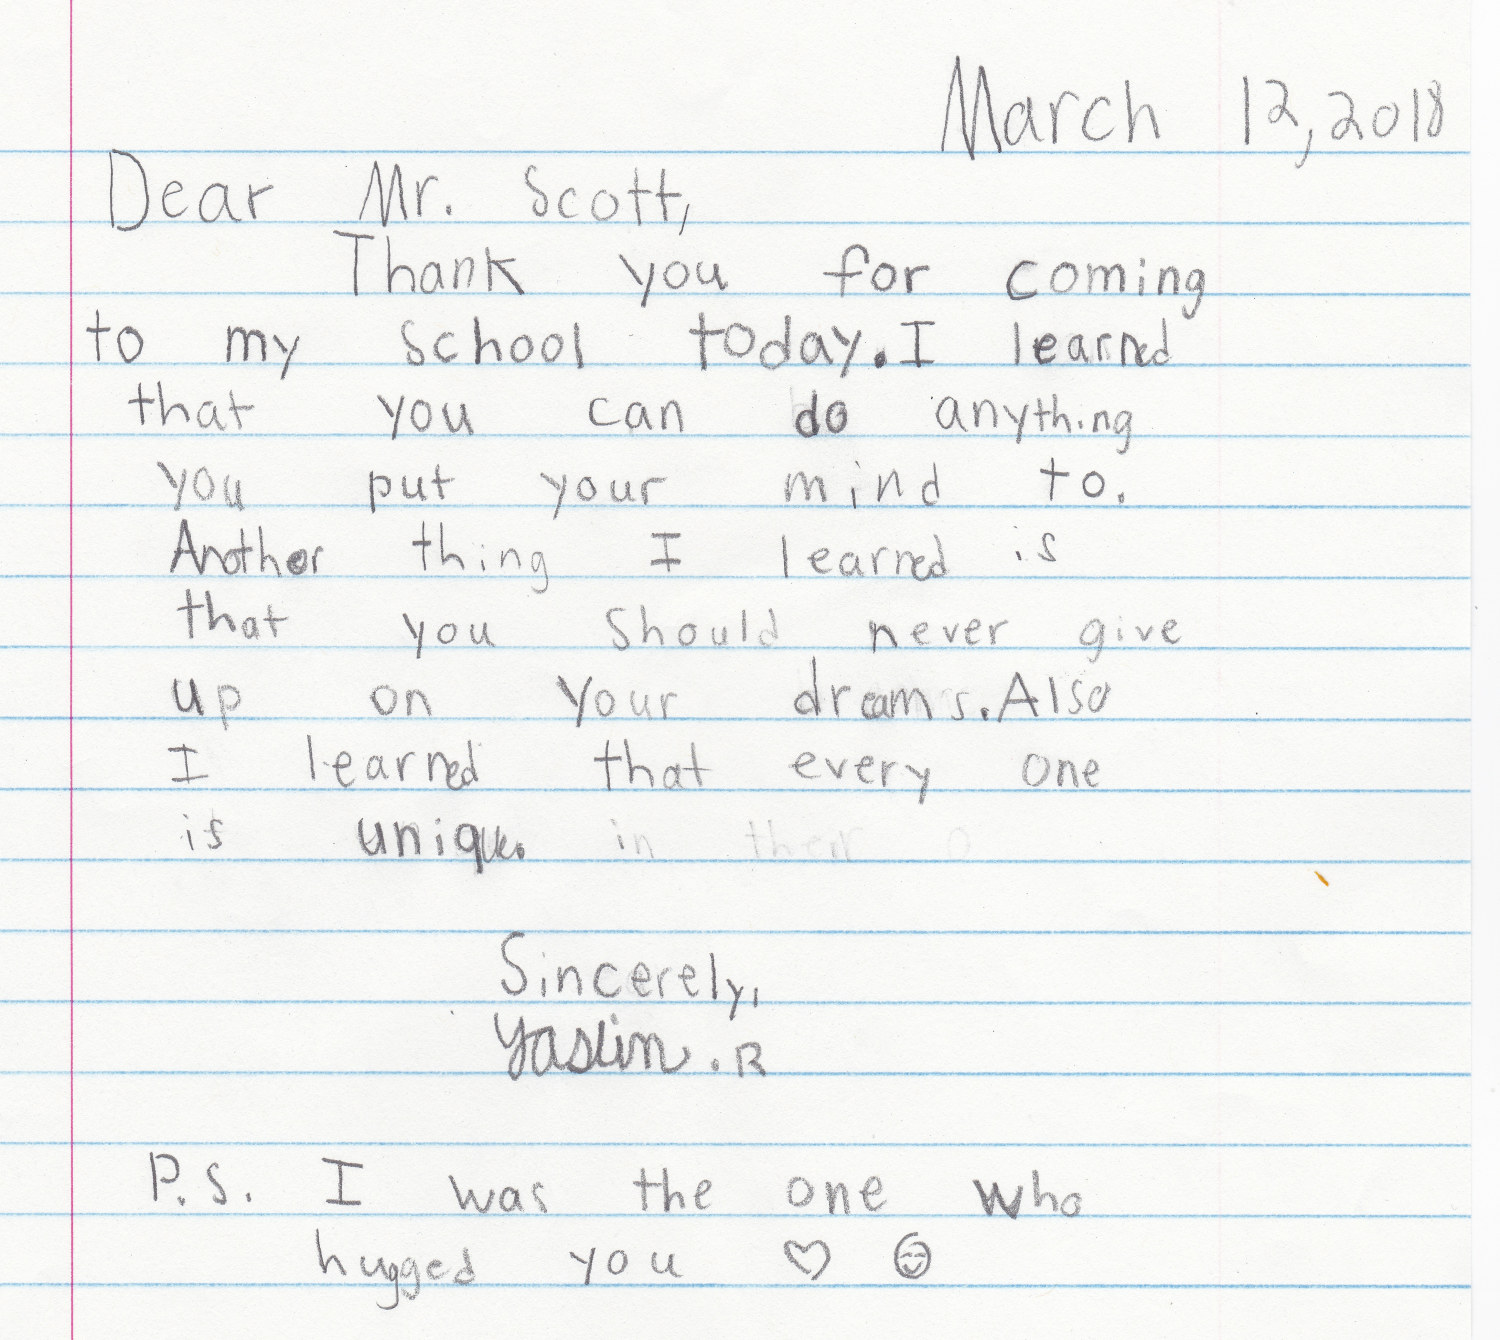 March 12, 2018
Dear Mr. Scott,
Thank you for coming
to my school today. I learned
that you can do anything
you put your mind to.
Another thing I learned is
that you should never give
up on your dreams. Also
I learned that every one
is unique. in their
Sincerely,
Yaslin . R
P.S. I was the one who
hugged you ♡ ☺